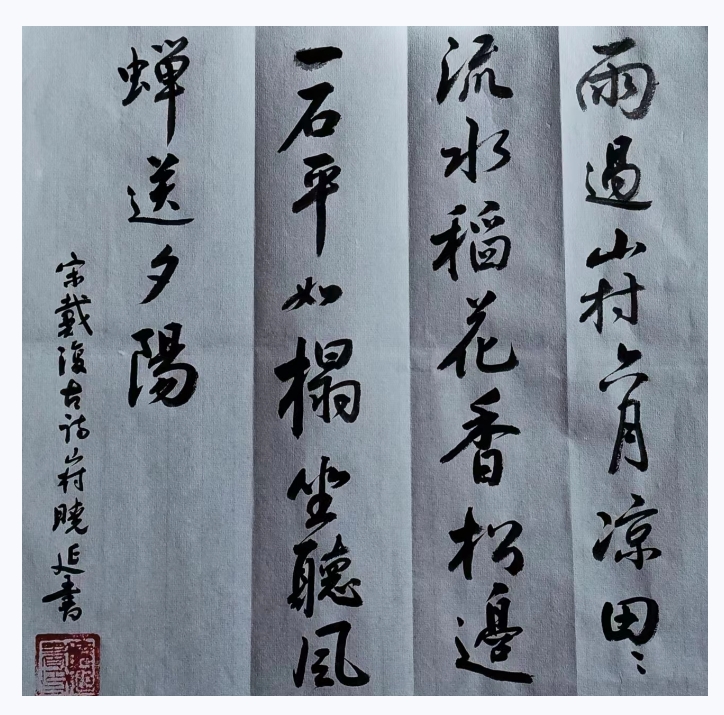 雨過山村六月涼田〻
流水稻花香松邊
一石平如榻坐聽風
蟬送夕陽
宋戴復古詩山村曉延書